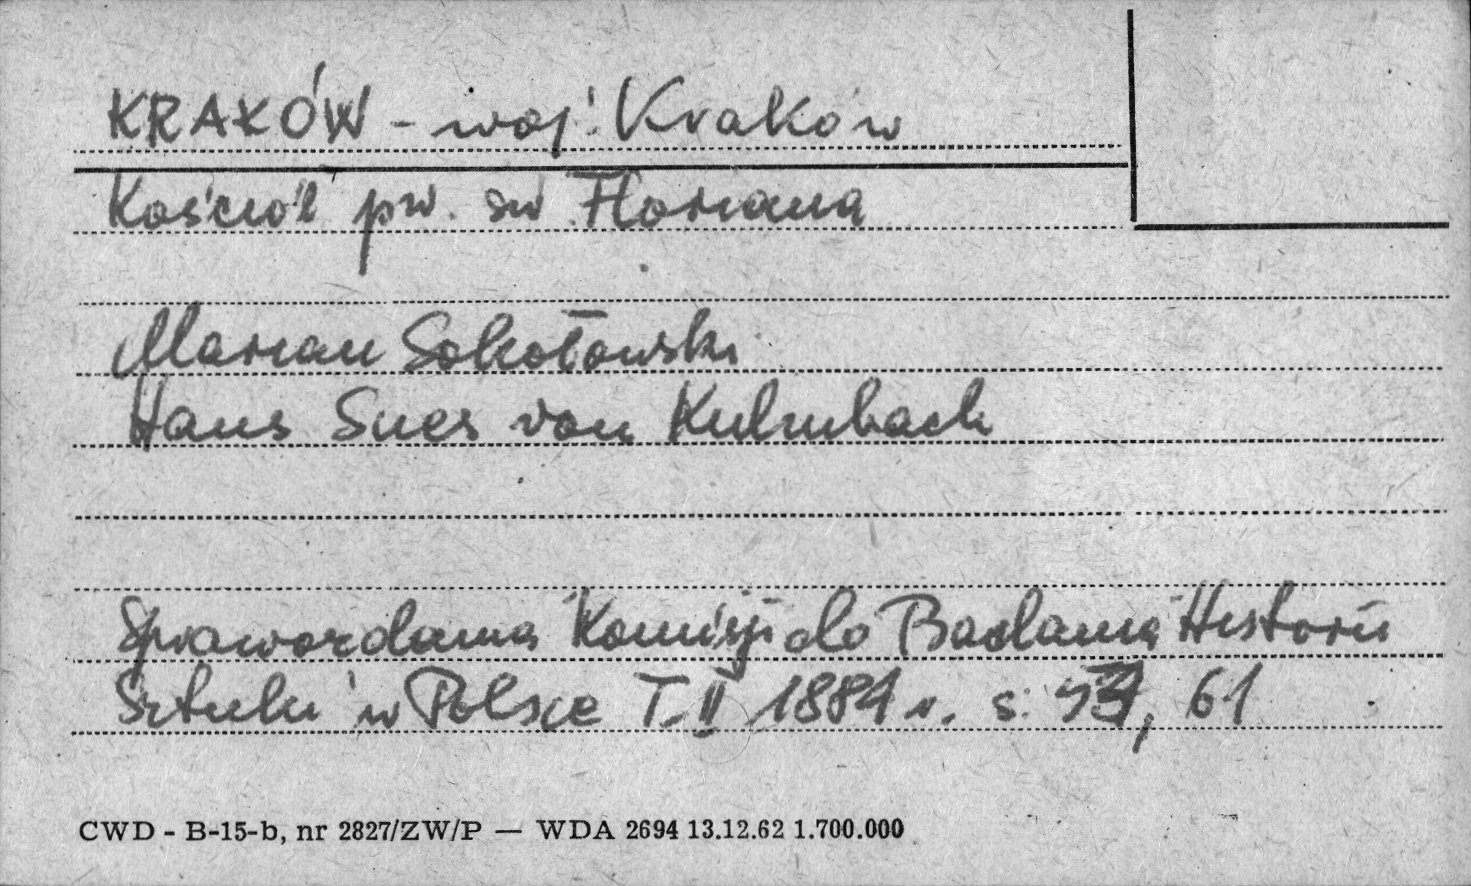 KRAKÓW - woj. Kraków
Kościół pw. św Floriana
Marian Sokołowski
Hans Sues von Kulmbach
Sprawozdania Komisji do Badania Historii
Sztuki w Polsce T. II 1884 r. s. 61
CWD - B-15-b, nr 2827/ZW/P — WDA 2694 13.12.62 1.700.000